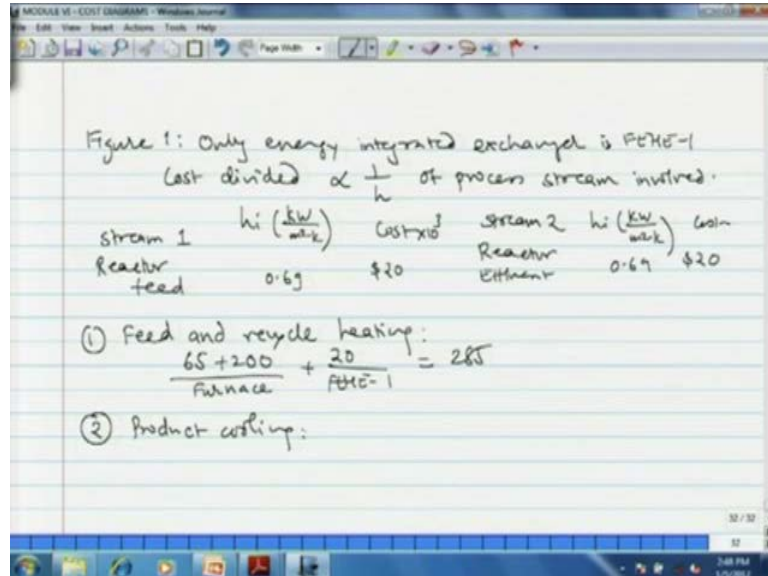 MODULE VI - COST DIAGRAMS - Windows Journal
Edit View Insert Actions Tools Help
Page Width
Figure 1: Only energy integrated exchanger is FEHE-1
Cost divided ∝ 1/h of process stream involved.
stream 1 hi (kW/m²·k) Cost×10³ stream 2 hi (kW/m²·k) Cost
Reactor feed 0.69 $20 Reactor Effluent 0.69 $20
① Feed and recycle heating:
65 + 200 / Furnace + 20 / FEHE-1 = 285
② Product cooling:
32 / 32
32
2:48 PM
1/5/2012